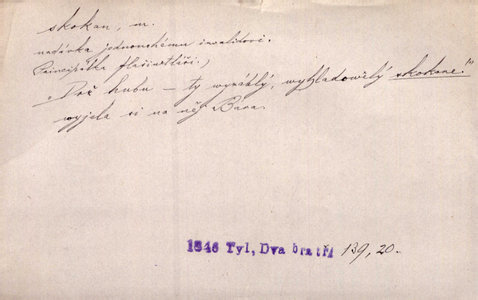 skokan, m.
nadávka jednonohému invalidovi.
(Principálka flašinetáři.)
„Drž hubu – ty vyzáblý, vyhladovělý skokane!"
vyjela si na něj Bara.
1846 Tyl, Dva bratři 139, 20.